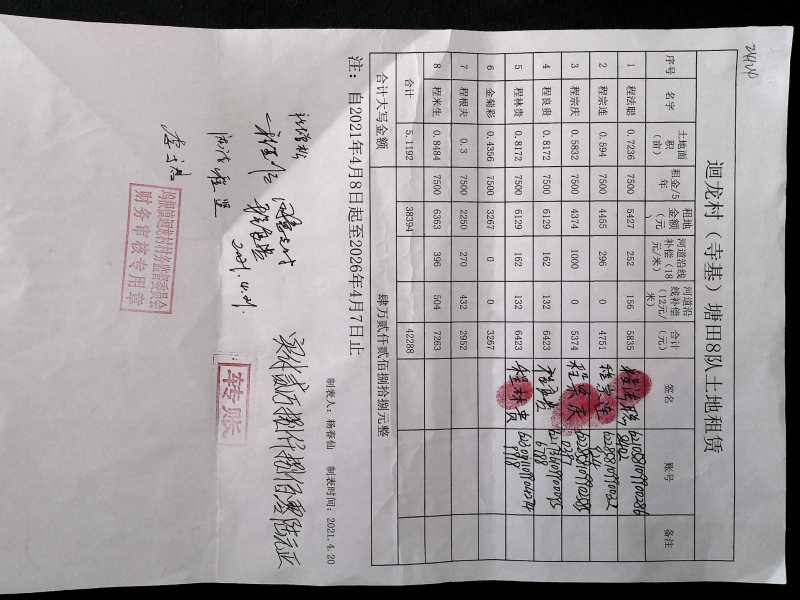 迴龙村（寺基）塘田8队土地租赁
序号 名字 土地面积（亩） 租金/5年 租地金额（元） 河道沿线补偿（18元/米） 河道沿线补偿（12元/米） 合计（元） 签名 账号 备注
1 程法聪 0.7236 7500 5427 252 156 5835 程法聪
2 程宗连 0.594 7500 4455 296 0 4751 程宗连
3 程宗庆 0.5832 7500 4374 1000 0 5374 程宗庆
4 程良贵 0.8172 7500 6129 162 132 6423 程良贵
5 程林贵 0.8172 7500 6129 162 132 6423 程林贵
6 金菊彩 0.4356 7500 3267 0 0 3267
7 程根夫 0.3 7500 2250 270 432 2952
8 程米生 0.8484 7500 6363 396 504 7263
合计 5.1192 38394 42288
合计大写金额 肆万贰仟贰佰捌拾捌元整
注：自2021年4月8日起至2026年4月7日止
制表人：杨春仙 制表时间：2021.4.20
同意支付
2021.4.21.
实付贰万捌仟捌佰零陆元正
转账
财务审核专用章